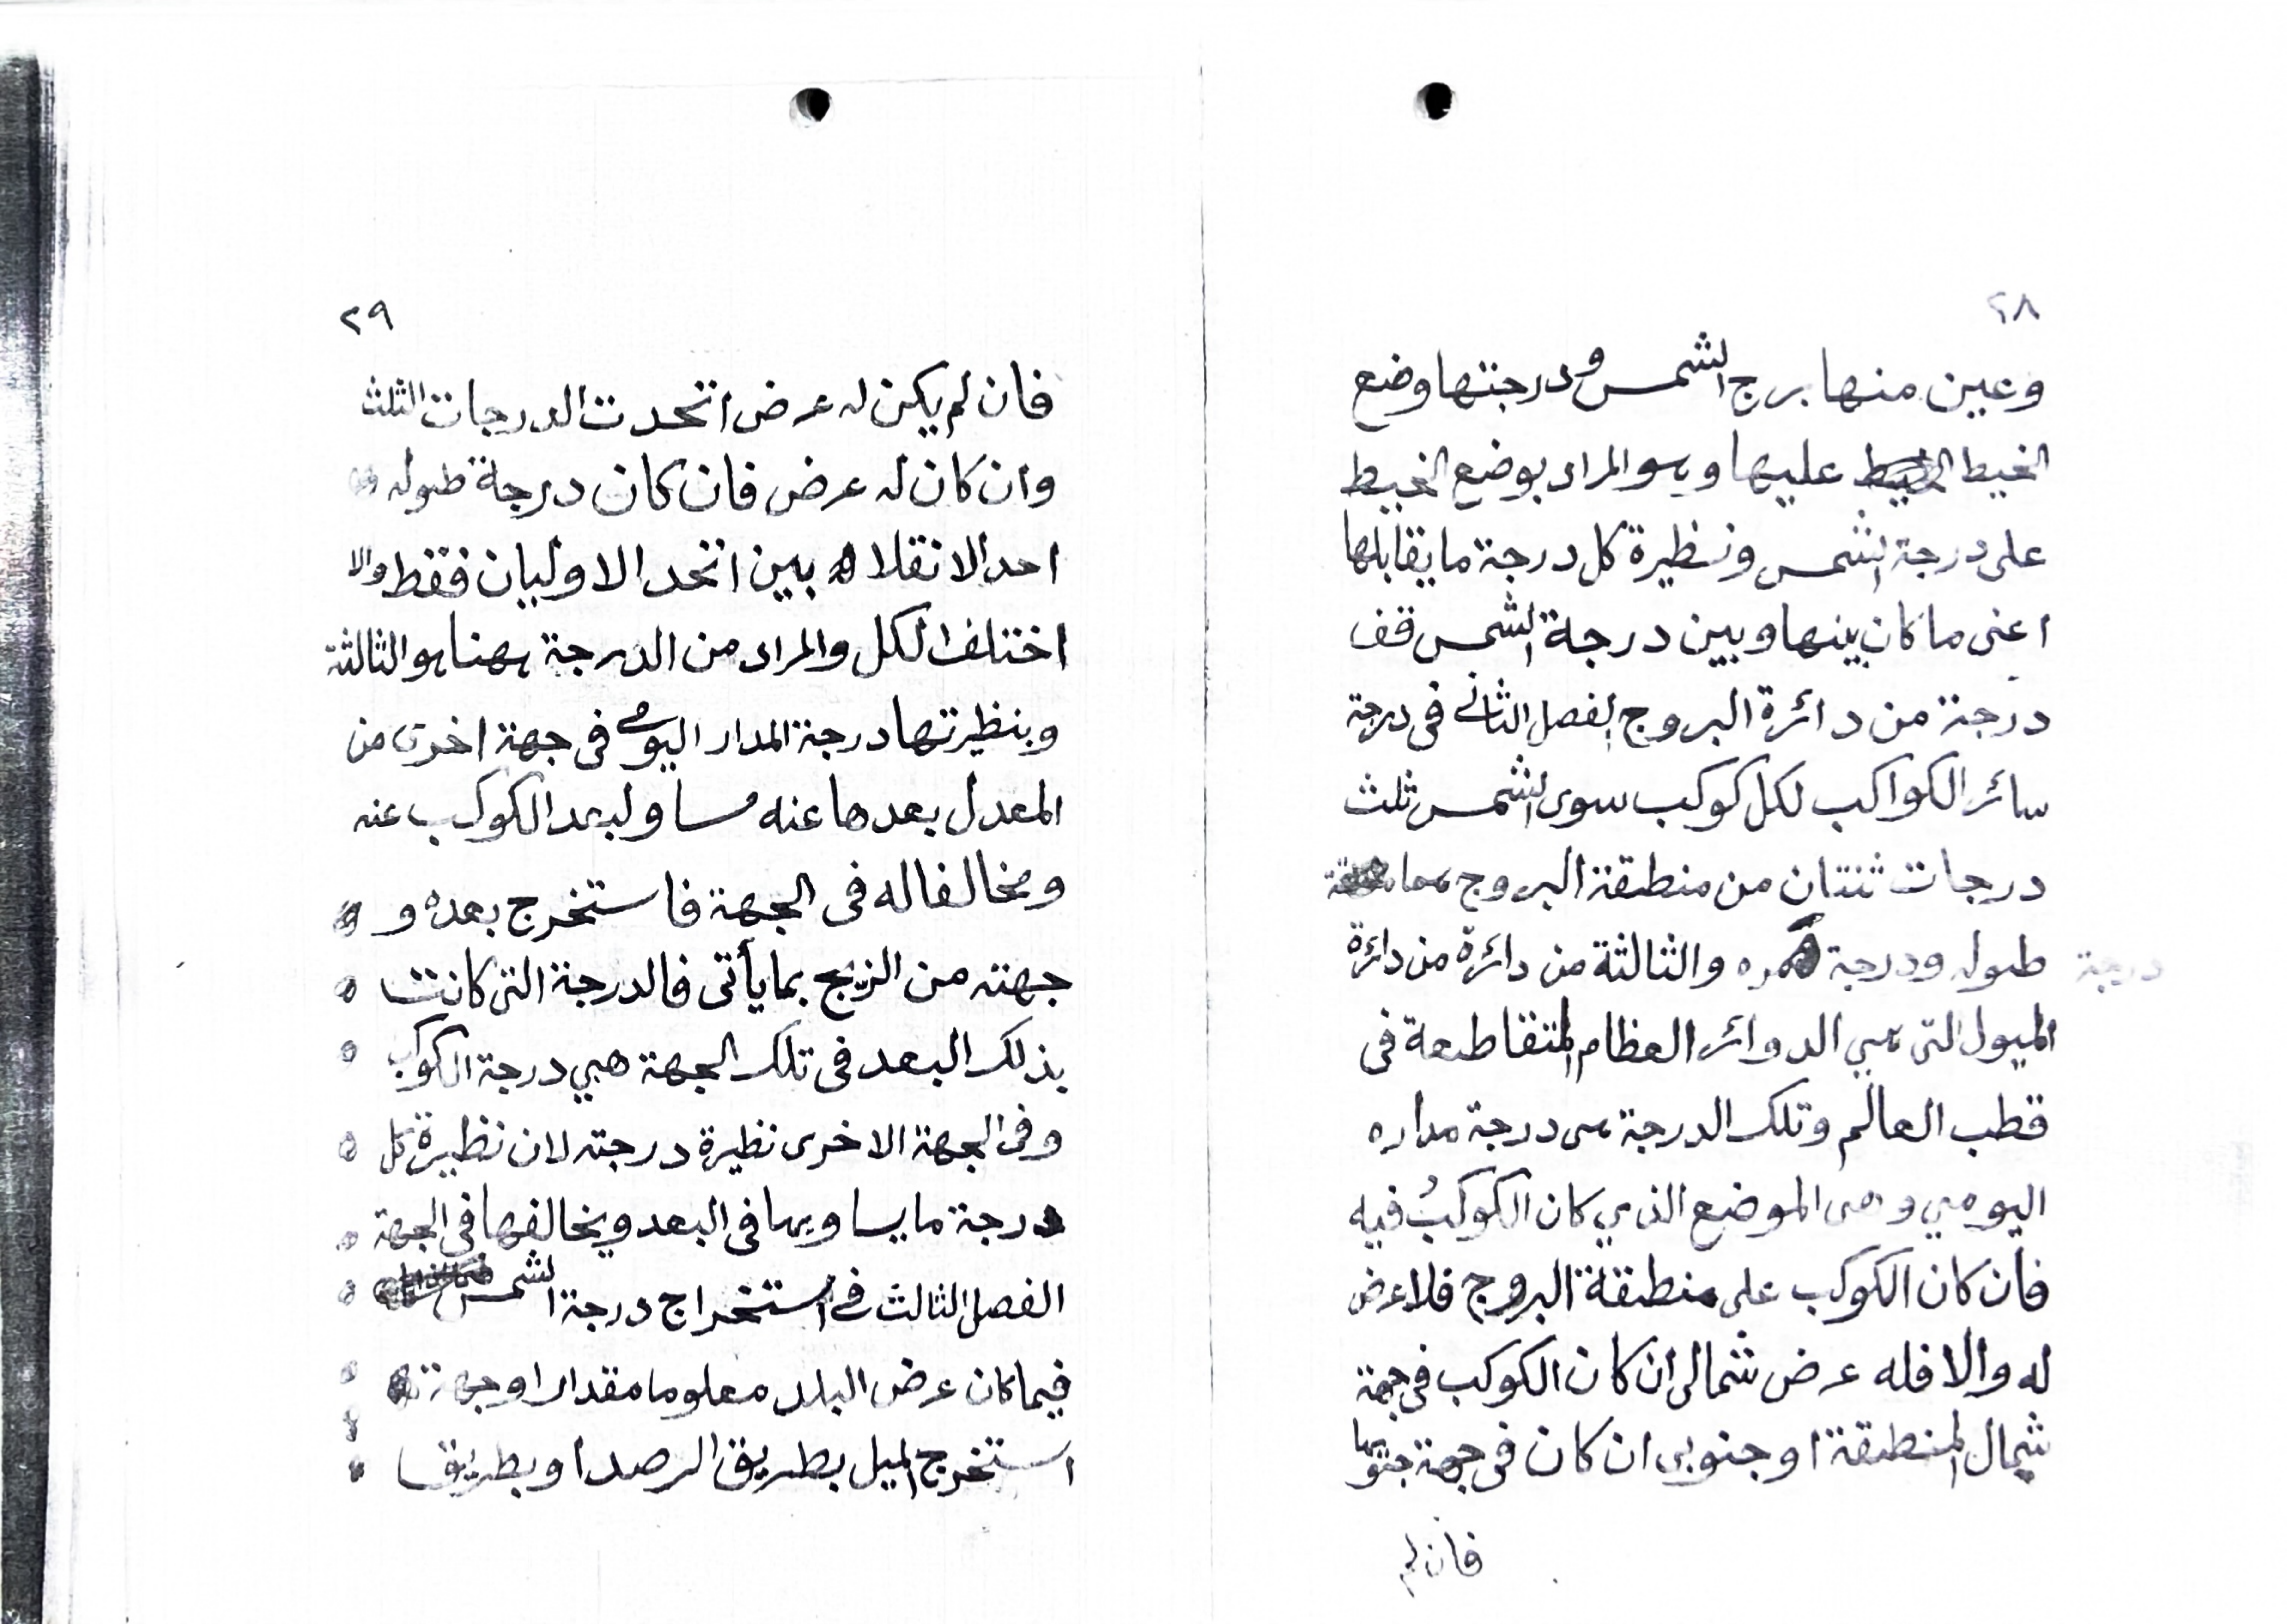 ٢٨
وعين منها برج الشمس ودرجتها وضع
الخيط عليها وهو المراد بوضع الخيط
على درجة الشمس ونظيرة كل درجة ما يقابلها
اعنى ما كان بينها وبين درجة الشمس قف
درجة من دائرة البروج الفصل الثانى فى درجة
سائر الكواكب لكل كوكب سوى الشمس ثلث
درجات ثنتان من منطقة البروج هما
درجة
طوله ودرجة ممره والثالثة من دائرة من دائرة
الميول التى هي الدوائر العظام المتقاطعة فى
قطب العالم وتلك الدرجة هى درجة مداره
اليومي وهى الموضع الذي كان الكوكبُ فيه
فان كان الكوكب على منطقة البروج فلا عرض
له والا فله عرض شمالى ان كان الكوكب فى جهة
شمال المنطقة او جنوبى ان كان فى جهة جنوبها
فان لم
٢٩
فان لم يكن له عرض اتحدت الدرجات الثلث
وان كان له عرض فان كان درجة طوله
احد الانقلابين اتحد الاوليان فقط والا
اختلف الكل والمراد من الدرجة ههنا هو الثالثة
وبنظيرتها درجة المدار اليومي فى جهة اخرى من
المعدل بعدها عنه مساو لبعد الكوكب عنه
ومخالفا له فى الجهة فاستخرج بعده و
جهته من الزيج بما يأتى فالدرجة التى كانت
بذلك البعد فى تلك الجهة هي درجة الكوكب
وفى الجهة الاخرى نظيرة درجته لان نظيرة كل
درجة ما يساويها فى البعد ويخالفها فى الجهة
الفصل الثالث فى استخراج درجة الشمس
فيما كان عرض البلد معلوما مقدارا وجهة
استخرج الميل بطريق الرصد او بطريق